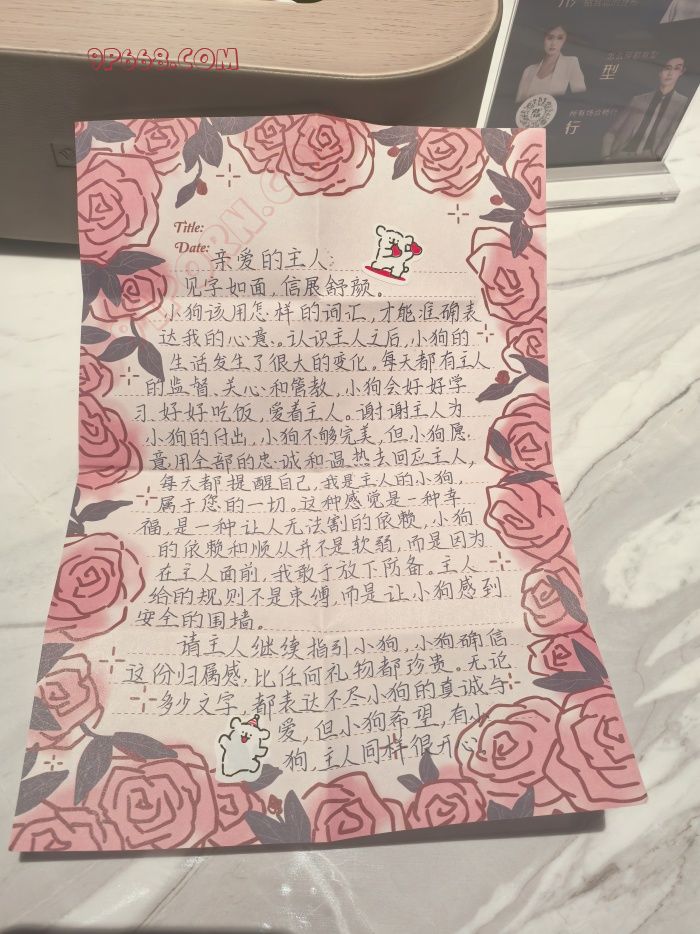 9P668.COM
怎么穿都有型
行
Title:
Date:
亲爱的主人:
见字如面,信展舒颜。
小狗该用怎样的词汇,才能准确表
达我的心意。认识主人之后,小狗的
生活发生了很大的变化。每天都有主人
的监督、关心和管教,小狗会好好学
习好好吃饭,爱着主人。谢谢主人为
小狗的付出,小狗不够完美,但小狗愿
意用全部的忠诚和温热去回应主人,
每天都提醒自己,我是主人的小狗,
属于您的一切。这种感觉是一种幸
福,是一种让人无法割的依赖,小狗
的依赖和顺从并不是软弱,而是因为
在主人面前,我敢于放下防备。主人
给的规则不是束缚,而是让小狗感到
安全的围墙。
请主人继续指引小狗,小狗确信
这份归属感,比任何礼物都珍贵。无论
多少文字,都表达不尽小狗的真诚与
爱,但小狗希望,有小
狗,主人同样很开心。